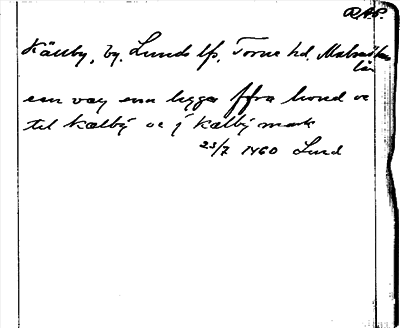 RAP.
Källby, by. Lunds lfs, Torna hd, Malmöhus
län
een wey enn ligger ffra lwnd oc
til kælbÿ oc j kælbÿ mark
23/7 1460 Lund